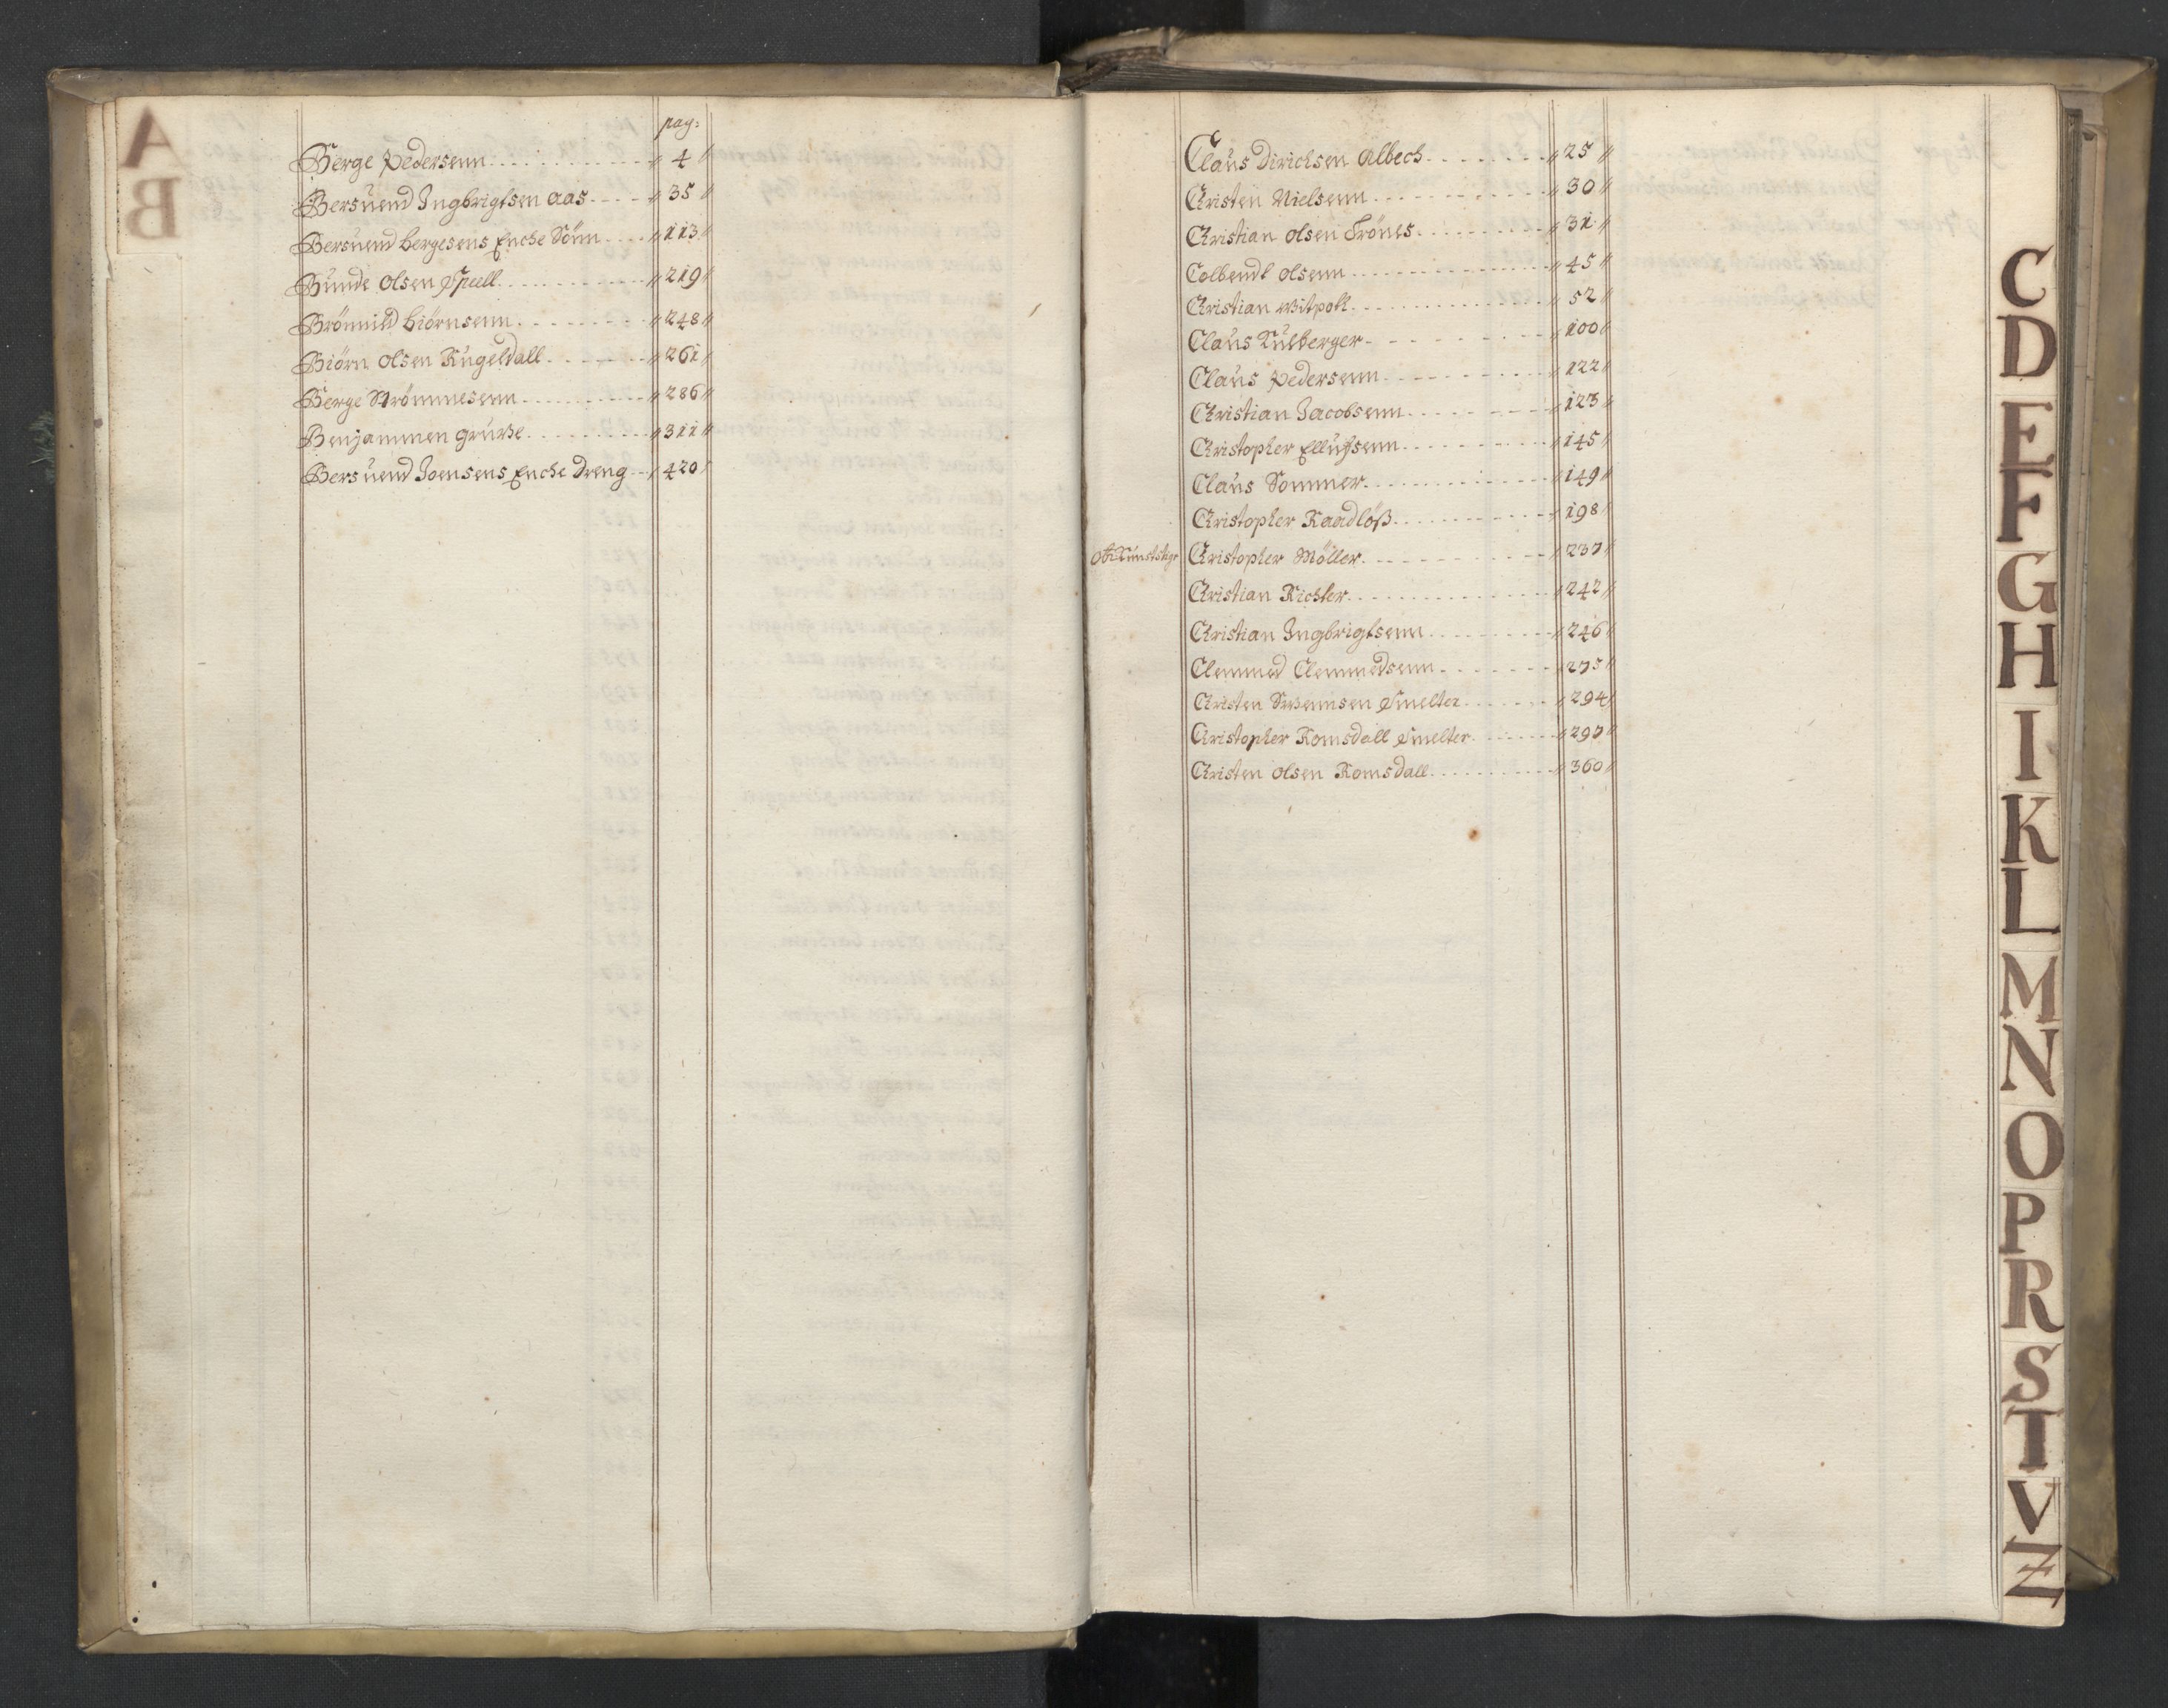 A
B
pag:
Berge Pedersenn // 4 //
Bersuend Ingbrigtsen Aas // 35 //
Bersuend Bergesens Enche Sönn // 113 //
Bunde Olsen Spell // 219 //
Brönnild Biörnsenn // 248 //
Biörn Olsen Kugeldall // 261 //
Berge Strömmesenn // 286 //
Benjammen Gruwe // 311 //
Bersuend Joensens Enche Dreng // 420 //
Claus Dirichsen Albech // 25 //
Christen Nielsenn // 30 //
Christian Olsen Frönes // 31 //
Colbendt Olsenn // 45 //
Christian Witpohl // 52 //
Claus // 100 //
Claus Pedersenn // 122 //
Christian Jacobsenn // 123 //
Christopher Ellufsenn // 145 //
Claus Sommer // 149 //
Christopher Raadlöß // 198 //
Christopher Möller // 237 //
Christian Richter // 242 //
Christian Ingbrigtsenn // 246 //
Clemmed Clemmedsenn // 275 //
Christen Swennsen Smelter // 294 //
Christopher Romsdall Smelter // 297 //
Christen Olsen Romsdall // 360 //
C
D
E
F
G
H
I
K
L
M
N
O
P
R
S
T
V
Z